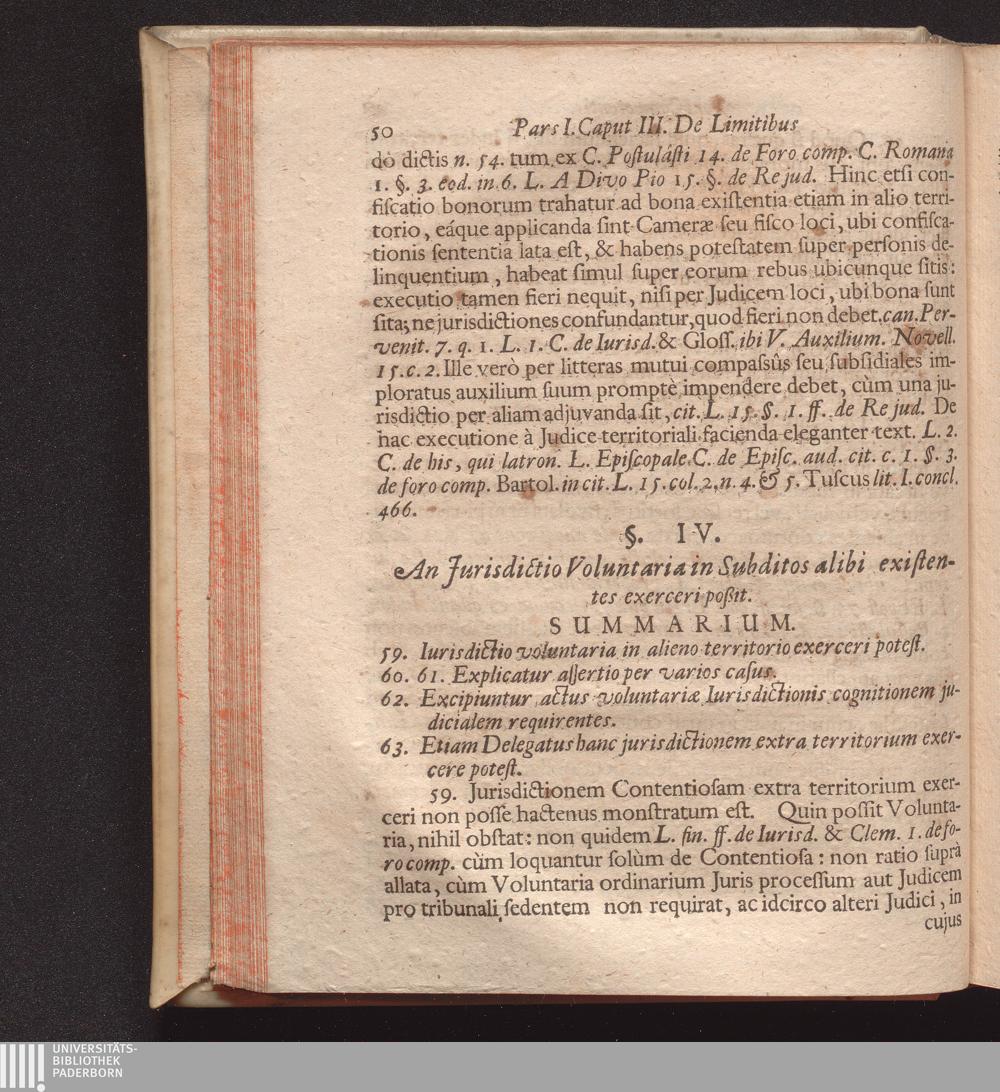 50 Pars I. Caput III. De Limitibus
do dictis n. 54. tum ex C. Postulásti 14. de Foro comp. C. Romana
1. §. 3. eod. in 6. L. A Divo Pio 15. §. de Re jud. Hinc etsi con-
fiſcatio bonorum trahatur ad bona exiſtentia etiam in alio terri-
torio, eáque applicanda ſint Cameræ ſeu fiſco loci, ubi confiſca-
tionis ſententia lata eſt, & habens poteſtatem ſuper perſonis de-
linquentium, habeat ſimul ſuper eorum rebus ubicunque ſitis:
executio tamen fieri nequit, niſi per Judicem loci, ubi bona ſunt
ſita; ne jurisdictiones confundantur, quod fieri non debet. can. Per-
venit. 7. q. 1. L. 1. C. de Iurisd. & Gloſſ. ibi V. Auxilium. Novell.
15. c. 2. Ille verò per litteras mutui compaſsûs ſeu ſubſidiales im-
ploratus auxilium ſuum promptè impendere debet, cùm una ju-
risdictio per aliam adjuvanda ſit, cit. L. 15. §. 1. ff. de Re jud. De
hac executione à Judice territoriali facienda eleganter text. L. 2.
C. de his, qui latron. L. Epiſcopale. C. de Epiſc. aud. cit. c. 1. §. 3.
de foro comp. Bartol. in cit. L. 15. col. 2. n. 4. & 5. Tuſcus lit. I. concl.
466.
§. IV.
An Jurisdictio Voluntaria in Subditos alibi exiſten-
tes exerceri poßit.
SUMMARIUM.
59. Iurisdictio voluntaria in alieno territorio exerceri poteſt.
60. 61. Explicatur aſſertio per varios caſus.
62. Excipiuntur actus voluntariæ Iurisdictionis cognitionem ju-
dicialem requirentes.
63. Etiam Delegatus hanc jurisdictionem extra territorium exer-
cere poteſt.
59. Jurisdictionem Contentioſam extra territorium exer-
ceri non poſſe hactenus monſtratum eſt. Quin poſſit Volunta-
ria, nihil obſtat: non quidem L. fin. ff. de Iurisd. & Clem. 1. de fo-
ro comp. cùm loquantur ſolùm de Contentioſa: non ratio ſuprà
allata, cùm Voluntaria ordinarium Juris proceſſum aut Judicem
pro tribunali ſedentem non requirat, ac idcirco alteri Judici, in
cujus
UNIVERSITÄTS-
BIBLIOTHEK
PADERBORN